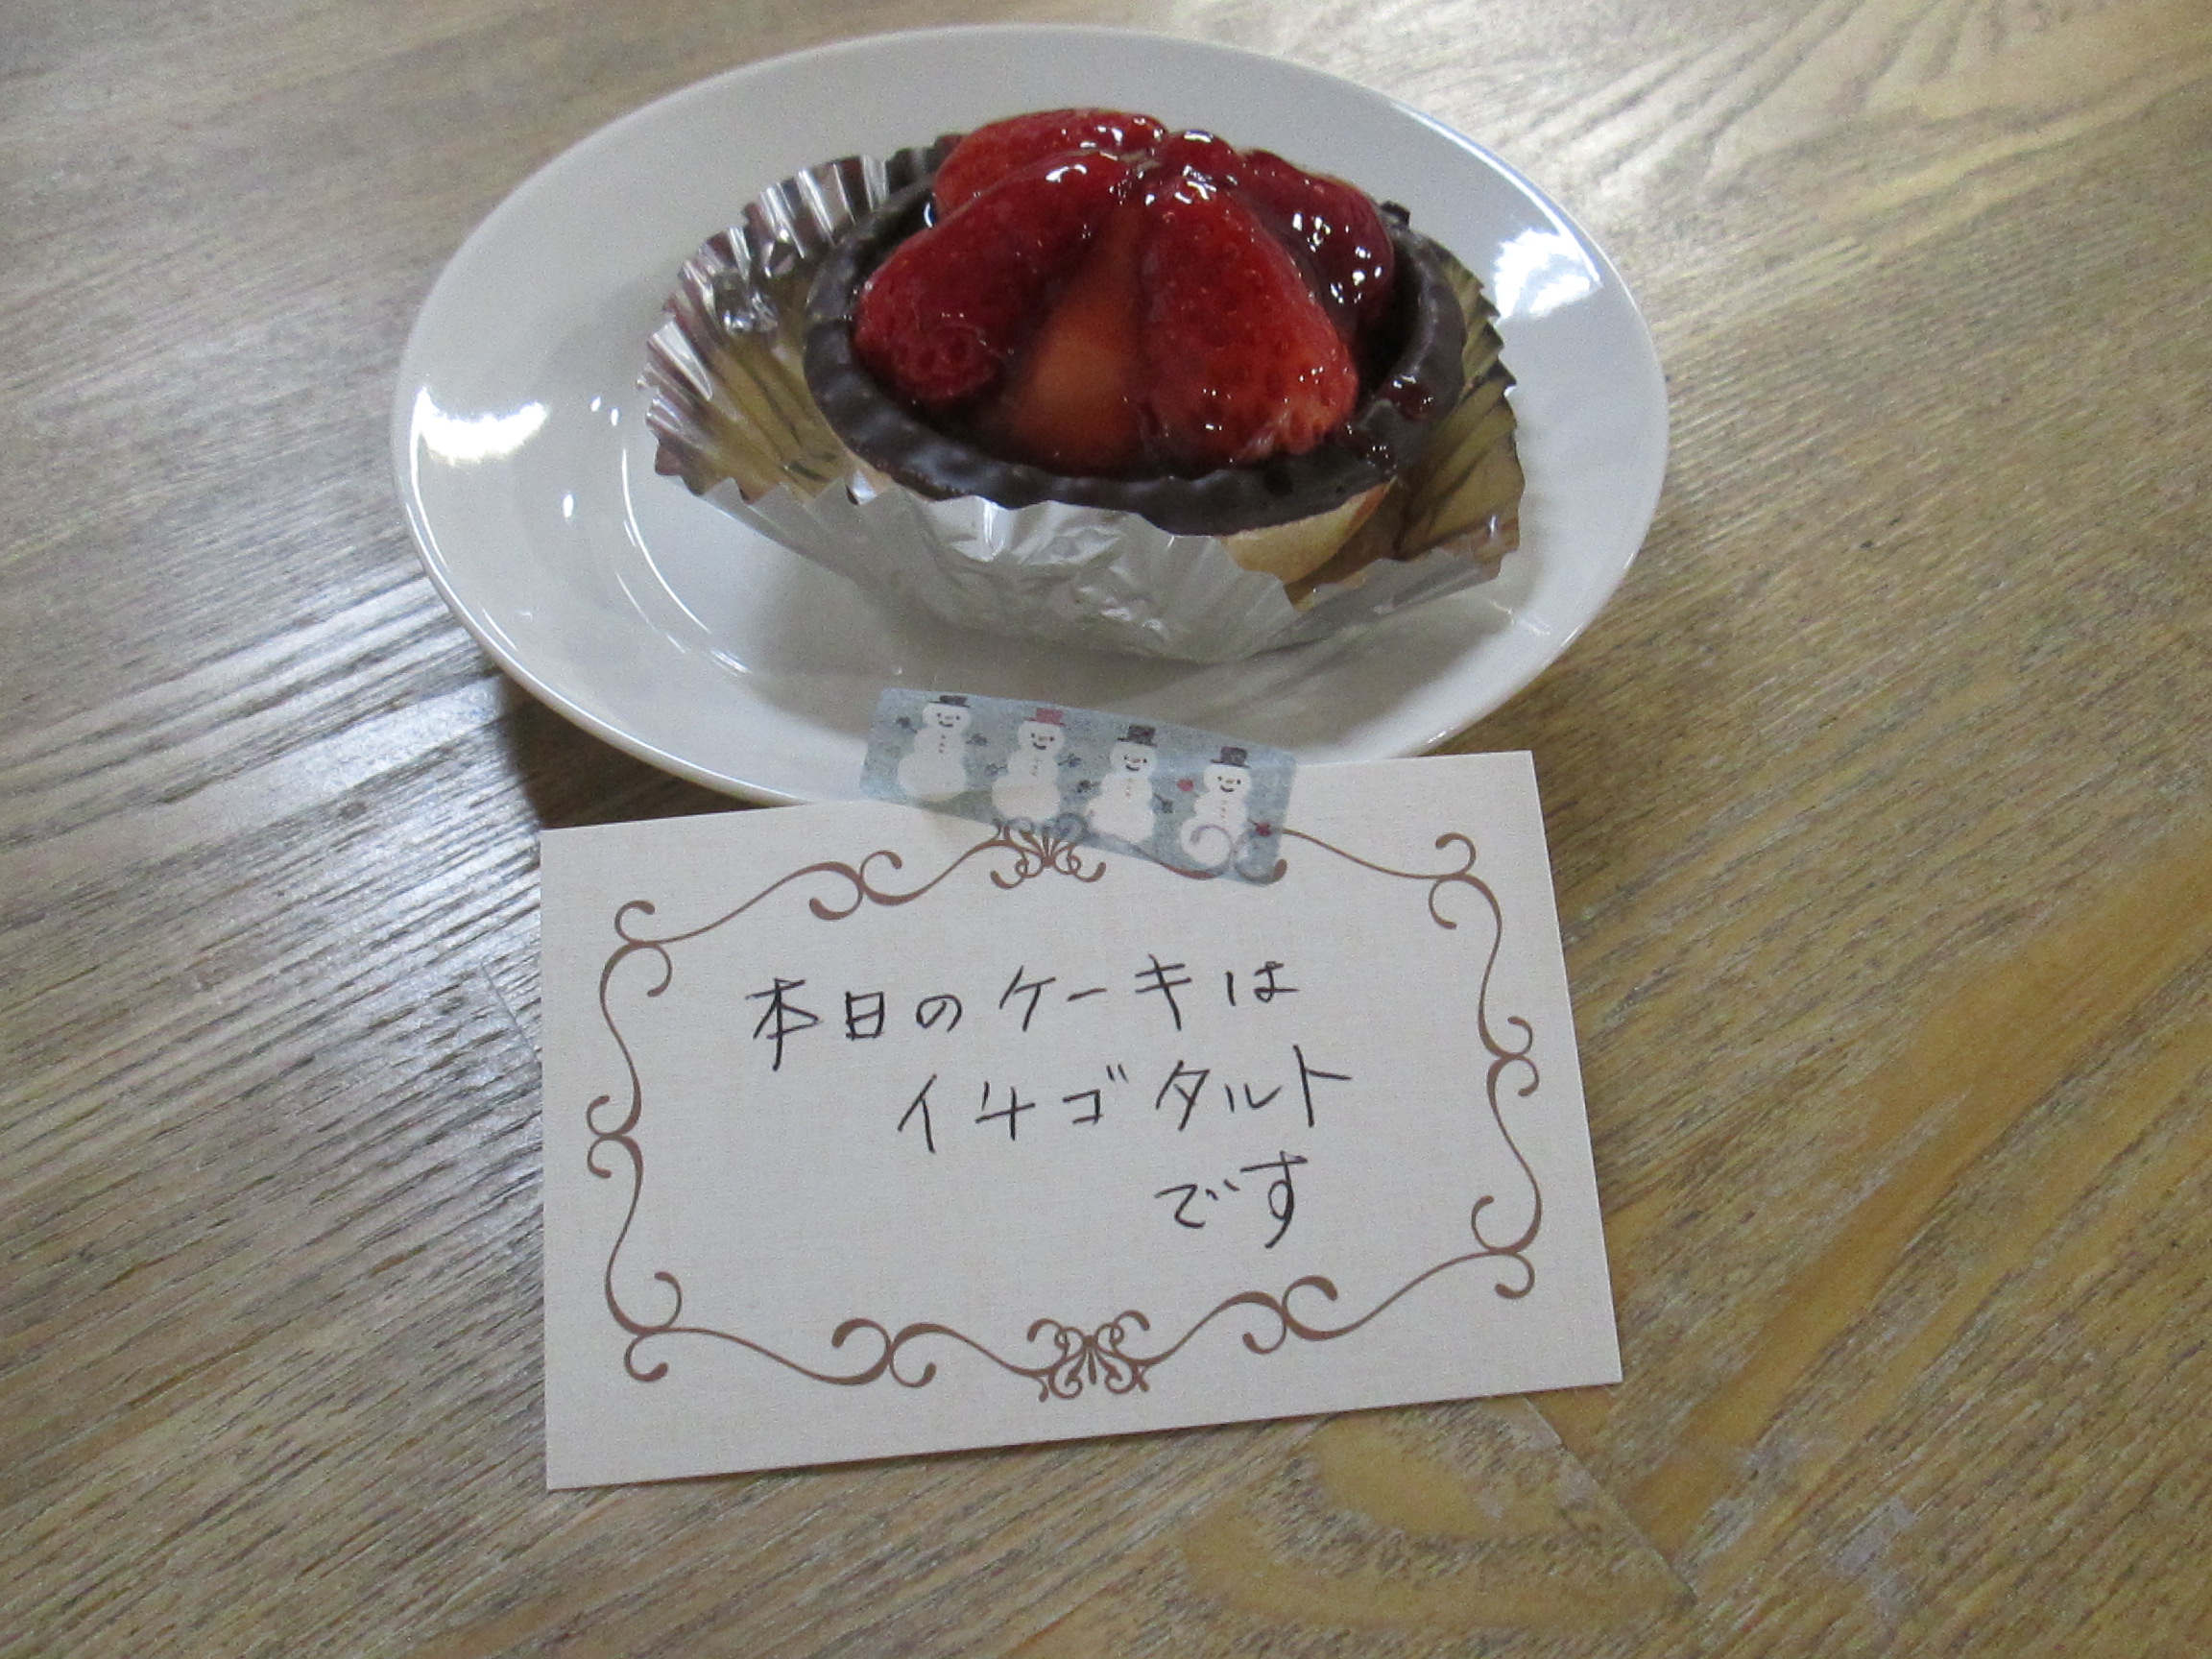 本日のケーキは
イチゴタルト
です